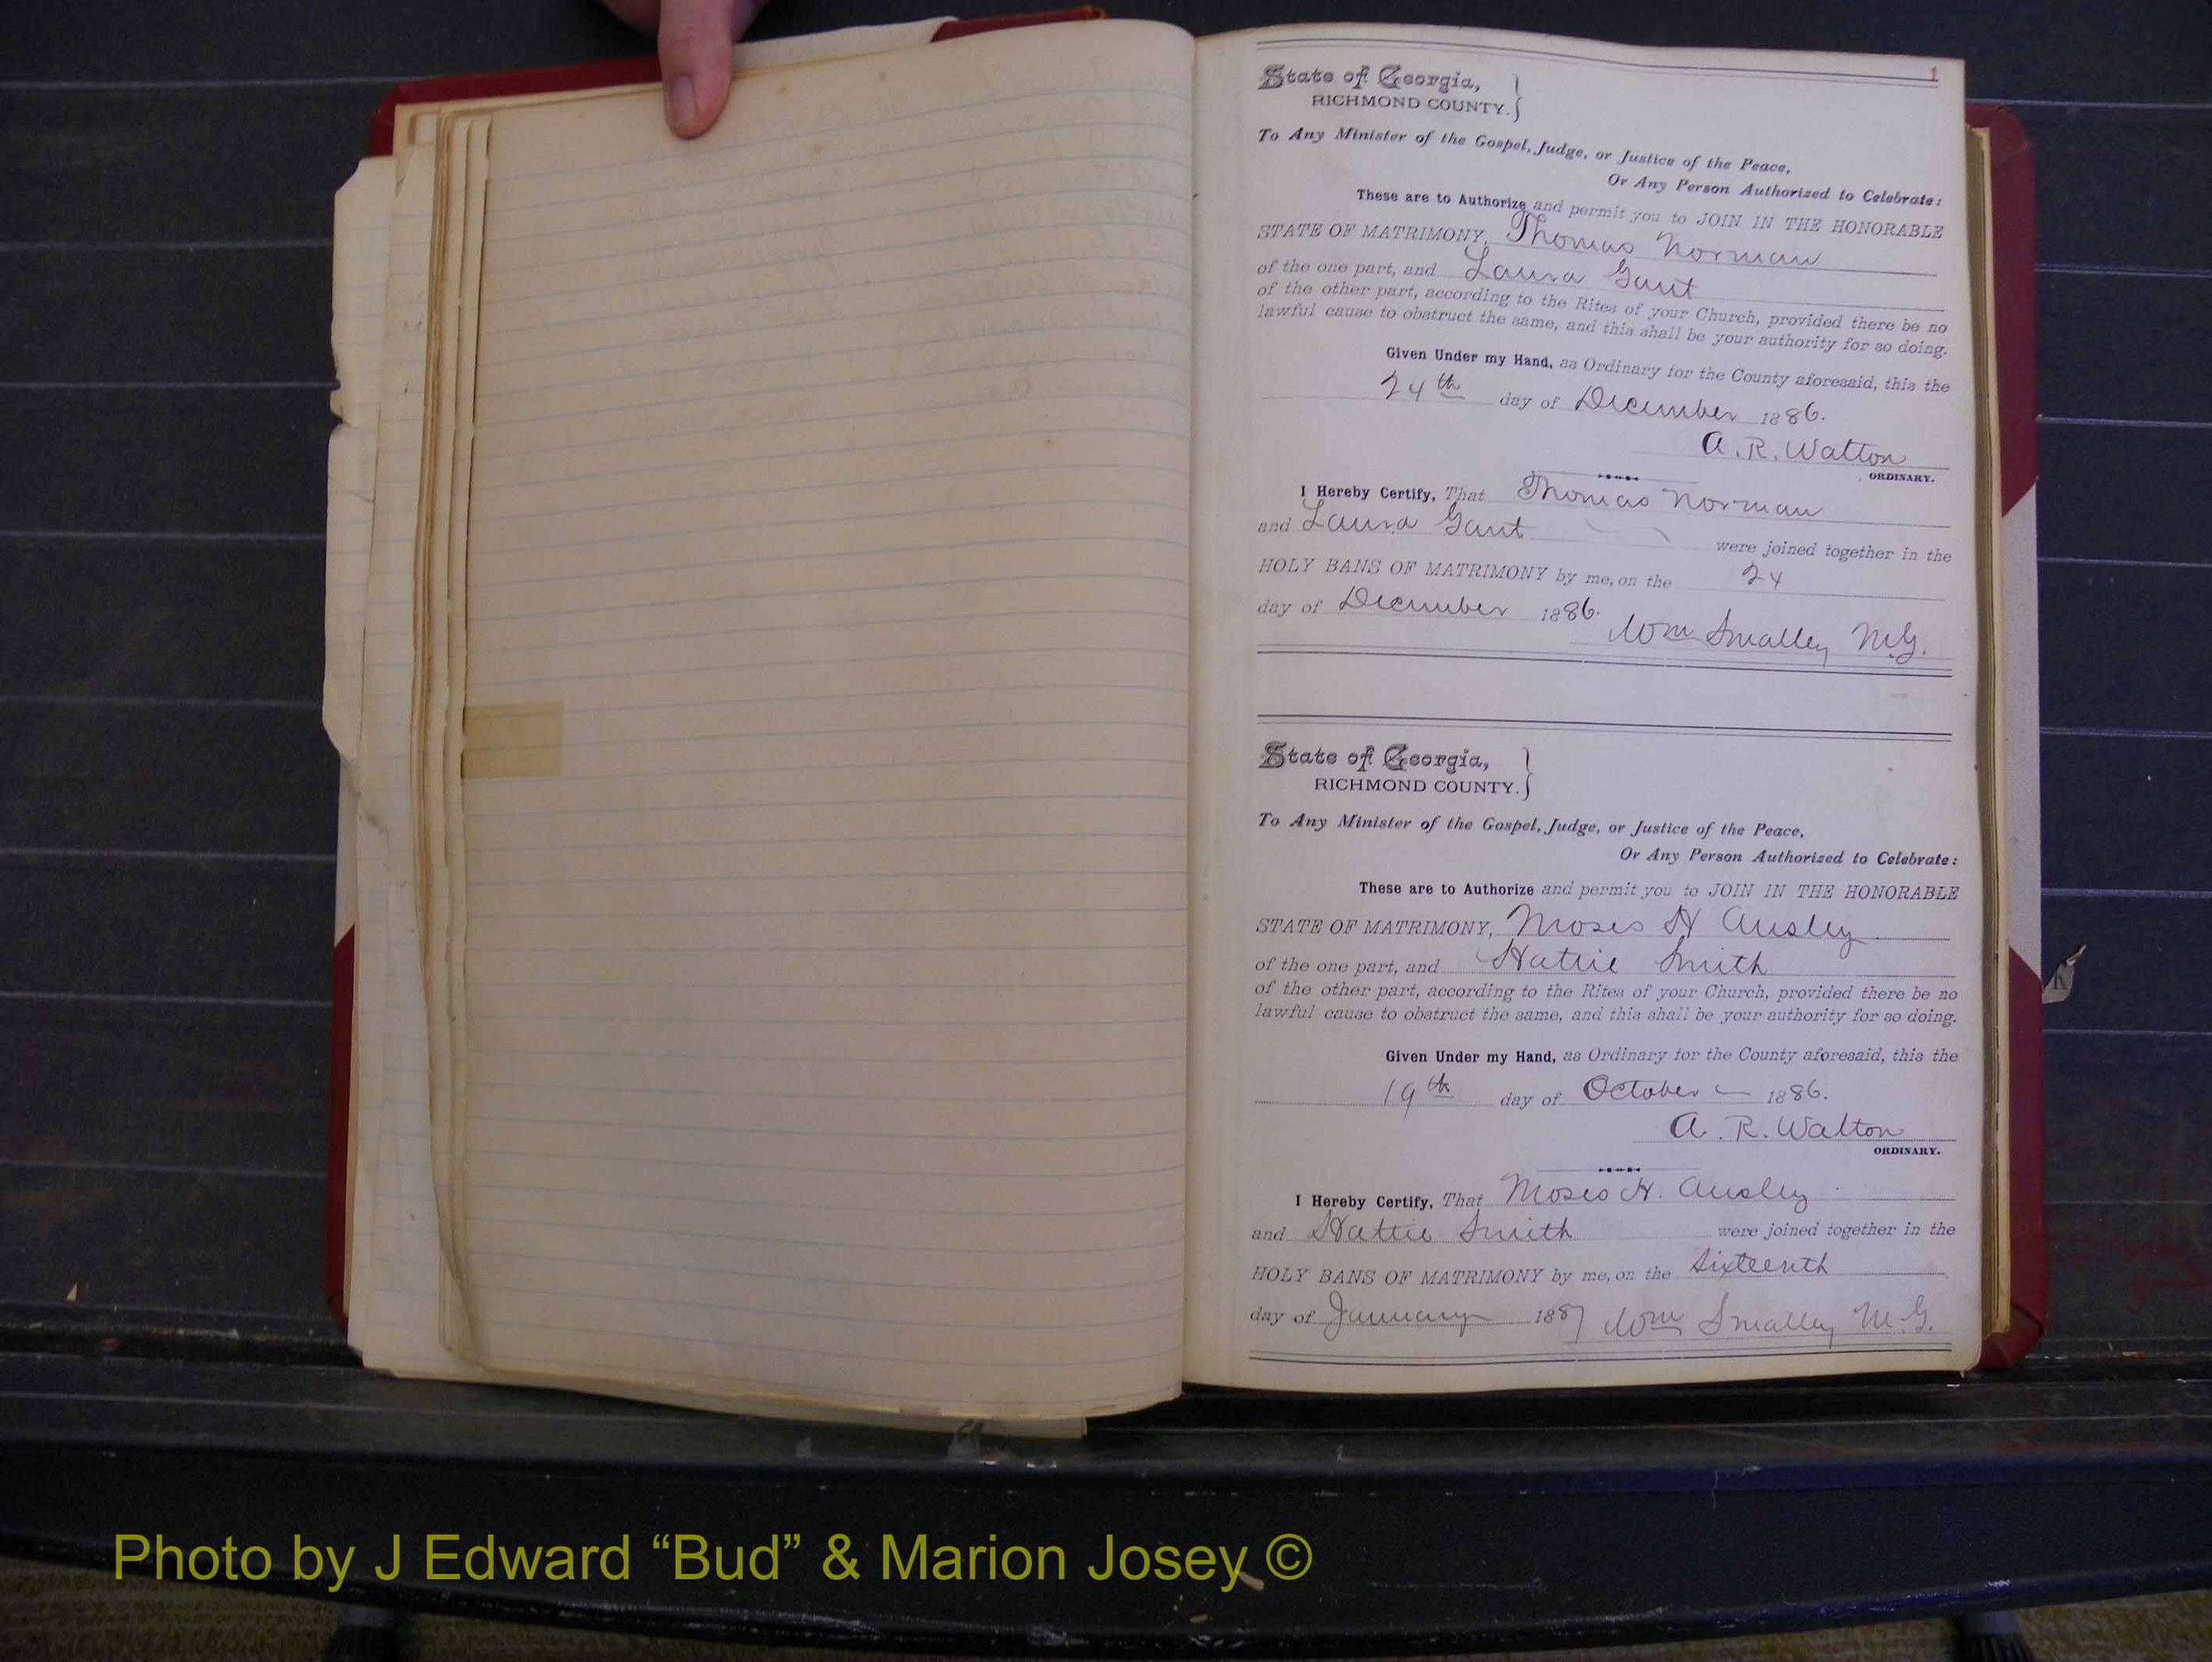 1
State of Georgia,
RICHMOND COUNTY.
To Any Minister of the Gospel, Judge, or Justice of the Peace,
Or Any Person Authorized to Celebrate:
These are to Authorize and permit you to JOIN IN THE HONORABLE
STATE OF MATRIMONY, Thomas Norman
of the one part, and Laura Gant
of the other part, according to the Rites of your Church, provided there be no
lawful cause to obstruct the same, and this shall be your authority for so doing.
Given Under my Hand, as Ordinary for the County aforesaid, this the
24th day of December 1886.
A. R. Walton
ORDINARY.
I Hereby Certify, That Thomas Norman
and Laura Gant were joined together in the
HOLY BANS OF MATRIMONY by me, on the 24
day of December 1886.
Wm Smalley M.G.
State of Georgia,
RICHMOND COUNTY.
To Any Minister of the Gospel, Judge, or Justice of the Peace,
Or Any Person Authorized to Celebrate:
These are to Authorize and permit you to JOIN IN THE HONORABLE
STATE OF MATRIMONY, Moses H Ausley
of the one part, and Hattie Smith
of the other part, according to the Rites of your Church, provided there be no
lawful cause to obstruct the same, and this shall be your authority for so doing.
Given Under my Hand, as Ordinary for the County aforesaid, this the
19th day of October 1886.
A. R. Walton
ORDINARY.
I Hereby Certify, That Moses H. Ausley
and Hattie Smith were joined together in the
HOLY BANS OF MATRIMONY by me, on the Sixteenth
day of January 1887 Wm Smalley M.G.
Photo by J Edward “Bud” & Marion Josey ©